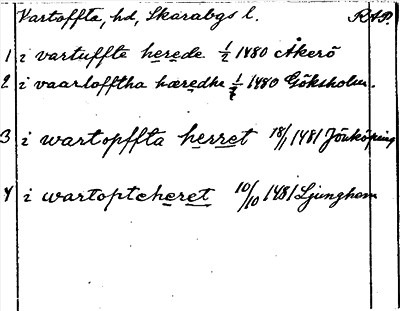 Vartoffta, hd, Skarabgs l. RAP.
1 i vartuffte herede 1/2 1480 Åkerö
2 i vaarlofftha hæredhe 1/2 1480 Göksholm.
3 i wartopffta herret 18/1 1481 Jönköping
4 i wartoptcheret 10/10 1481 Ljunghem